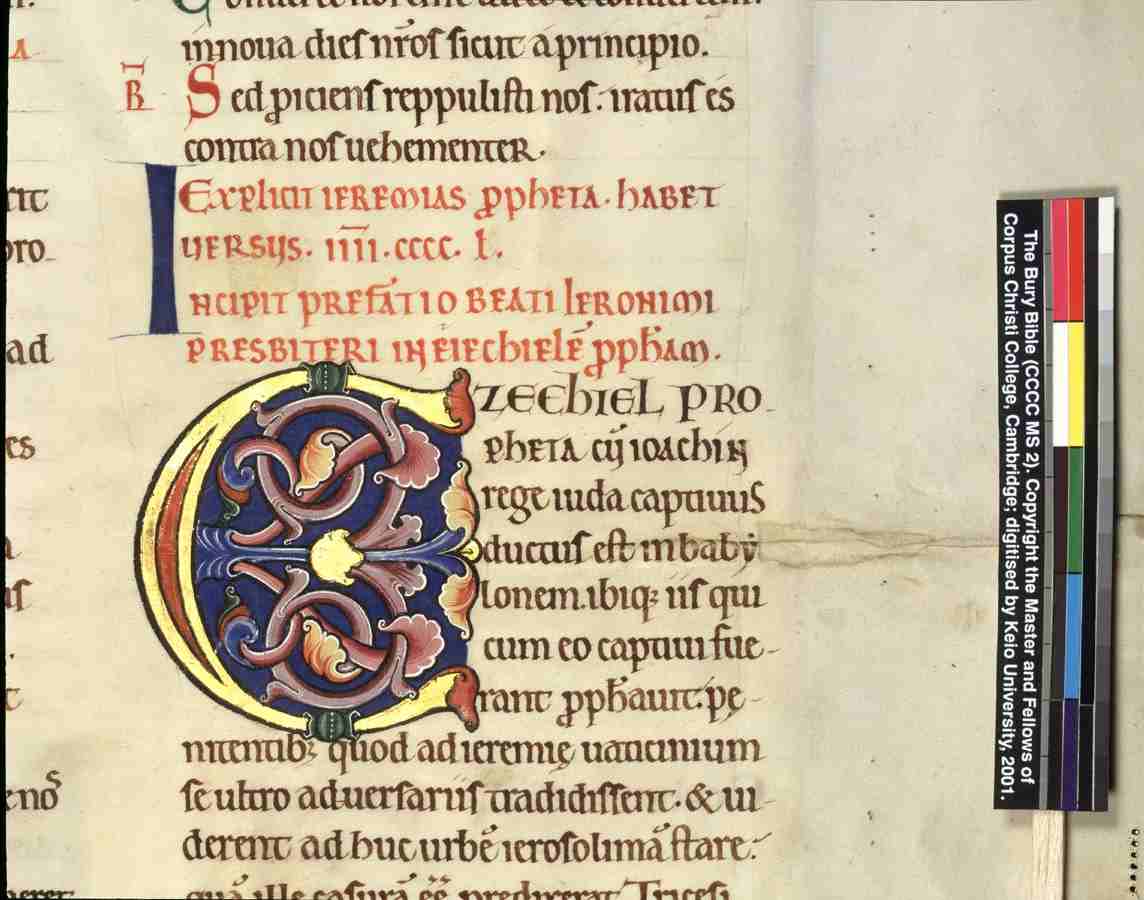 innoua dies nr̄os sicut a principio.
B̄ Sed ꝓiciens reppulisti nos: iratus es
contra nos uehementer.
Explicit ieremias ꝓpheta. habet
uersus. iiii̅.cccc. l.
Incipit prefatio beati Ieronimi
presbiteri in eiechielē ꝓph̄am.
EZECHIEL PRO-
pheta cū ioachin
rege iuda captiuus
ductus est in baby
lonem. ibiq; iis qui
cum eo captiui fue-
rant ꝓph̄auit: pę-
nitentib; quod ad ieremię uaticinium
se ultro aduersariis tradidissent. & ui-
derent ad huc urbē ierosolimā stare:
quā ille casurā eē̄ predixerat. Tricesi
rit
pro
ad
es
The Bury Bible (CCCC MS 2). Copyright the Master and Fellows of
Corpus Christi College, Cambridge; digitised by Keio University, 2001.